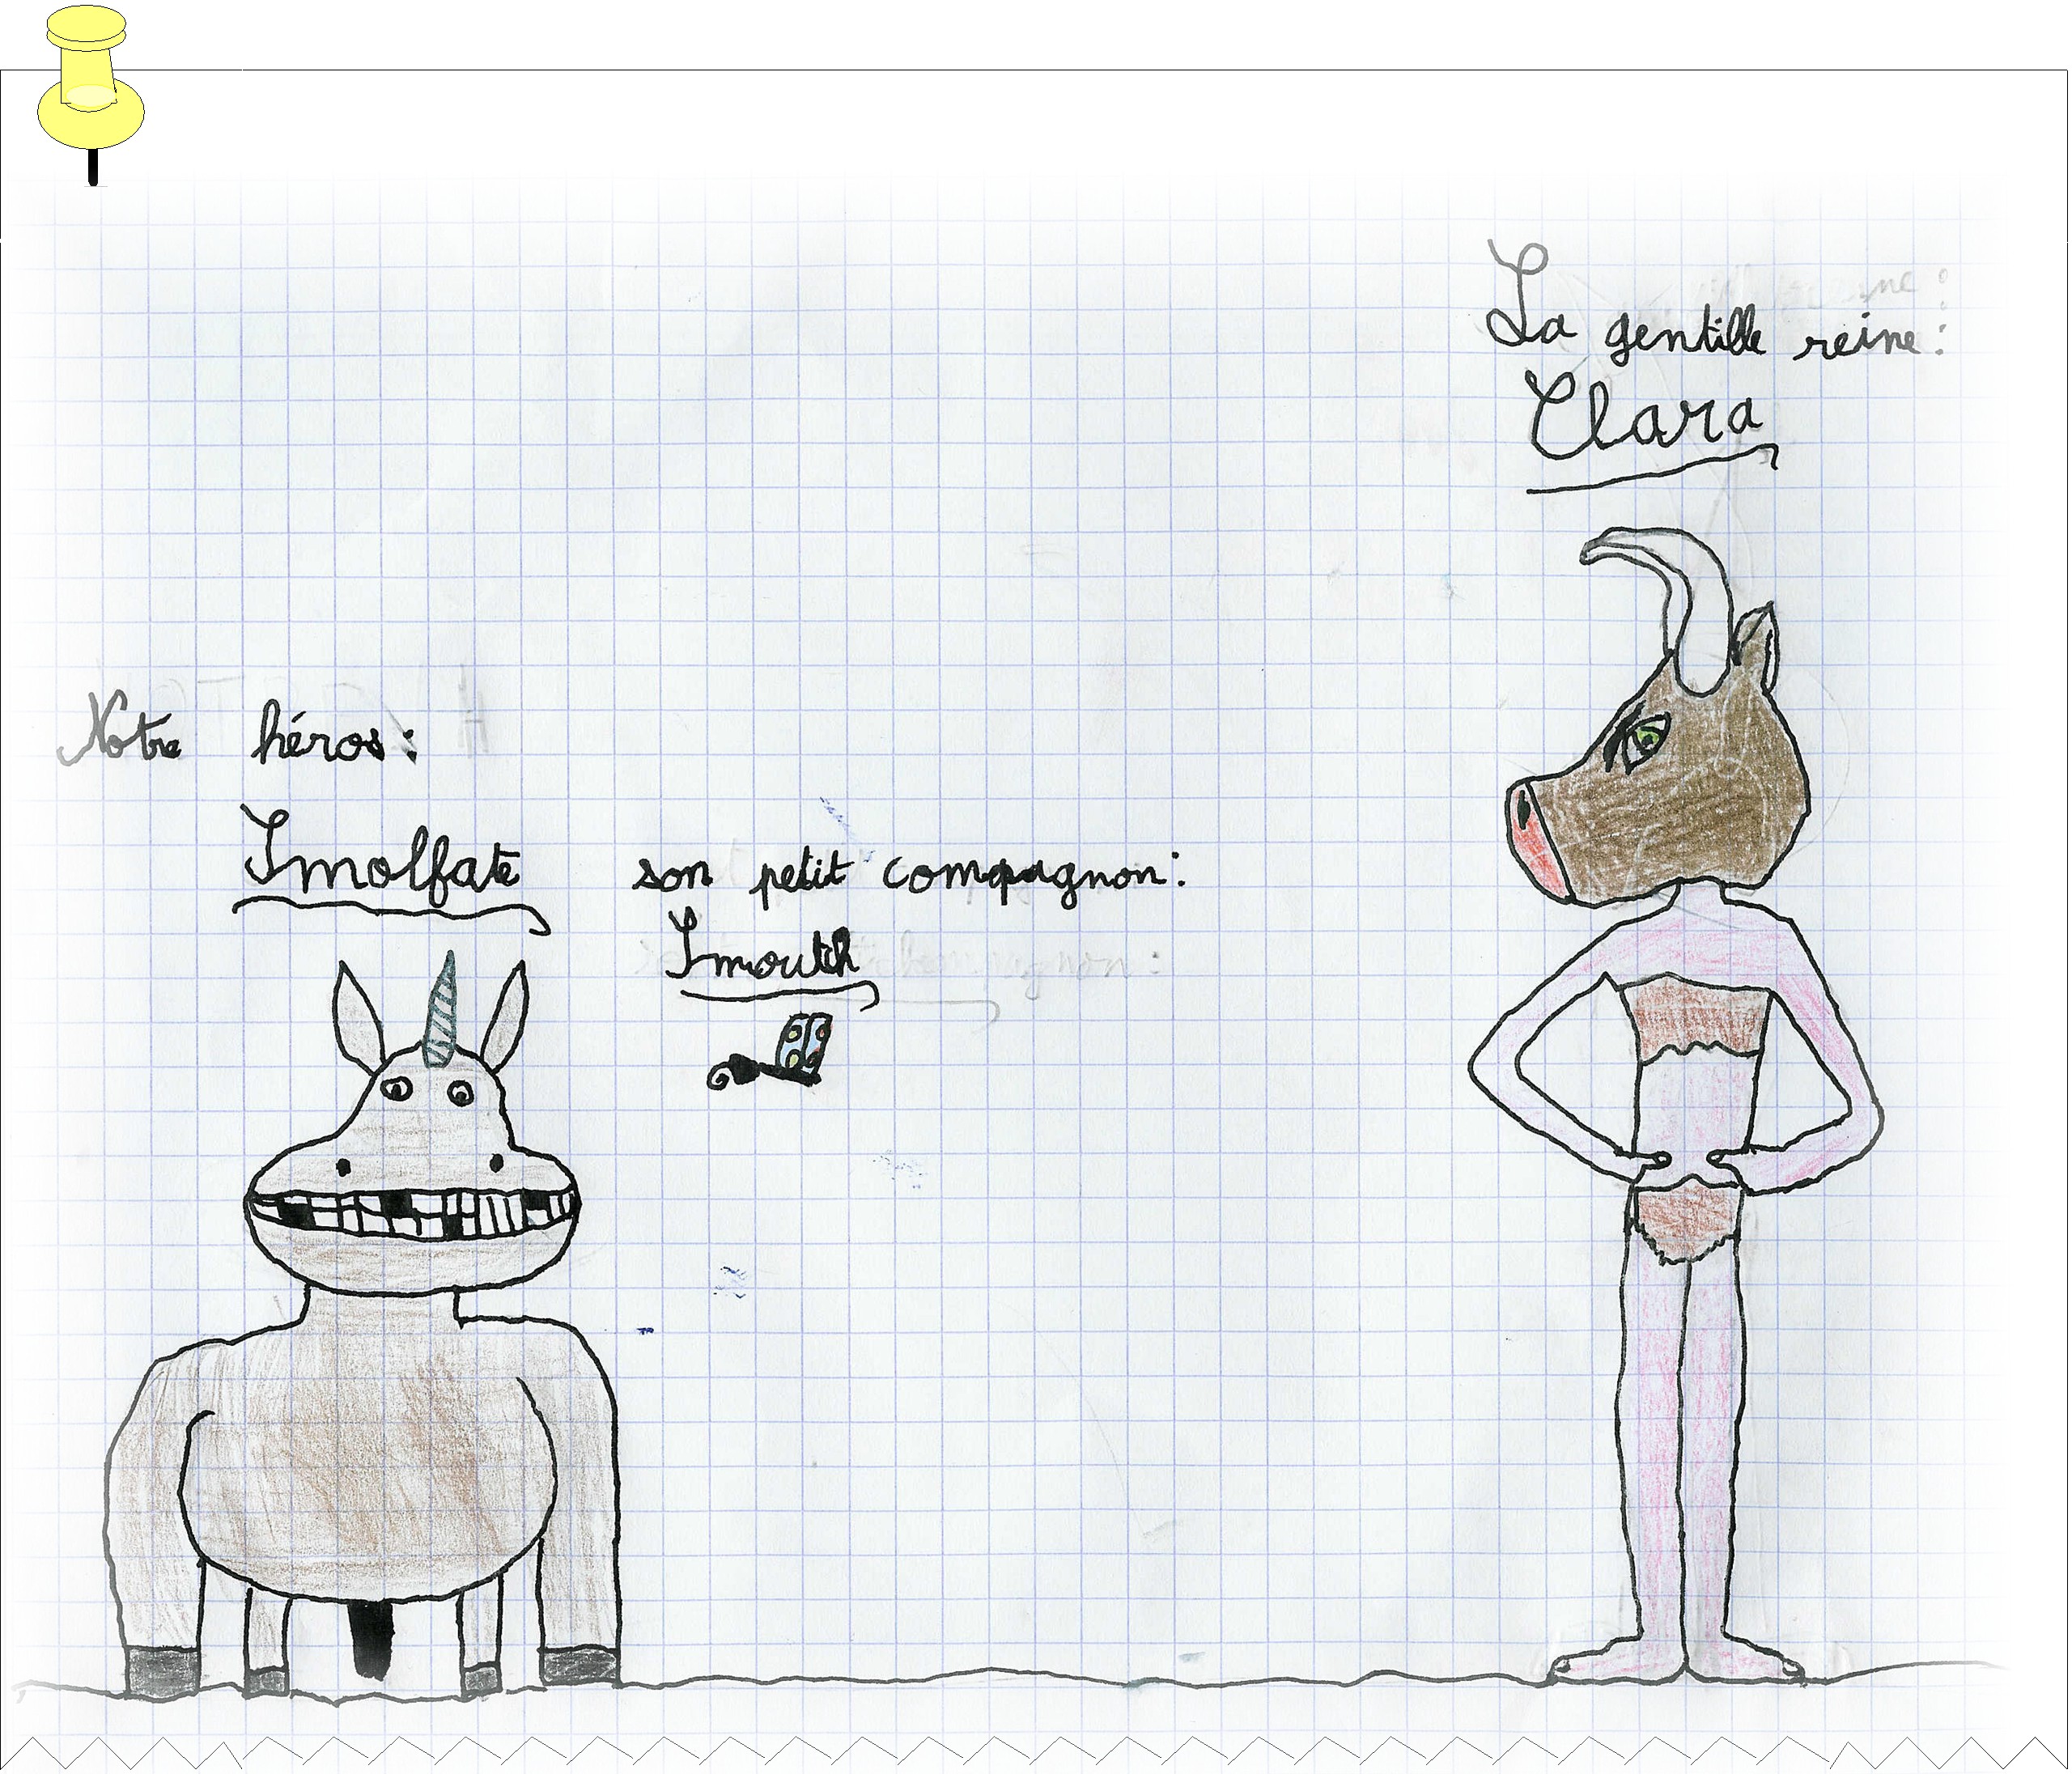 La gentille reine:
Clara
Notre héros:
Imolfate
son petit compagnon:
Imouth